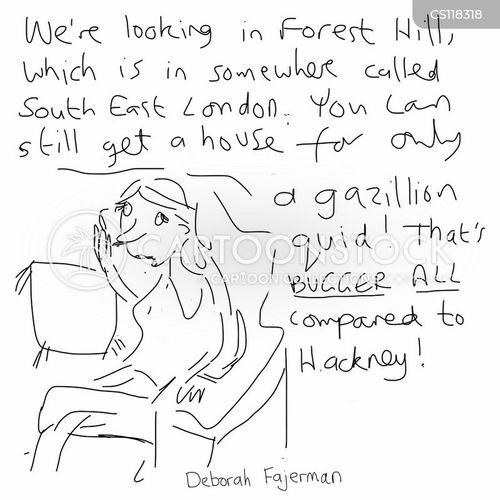 CS118318
We're looking in Forest Hill,
which is in somewhere called
South East London. You can
still get a house for only
a gazillion
quid! That's
BUGGER ALL
compared to
Hackney!
CARTOONSTOCK
CARTOON COLLECTIONS
Deborah Fajerman